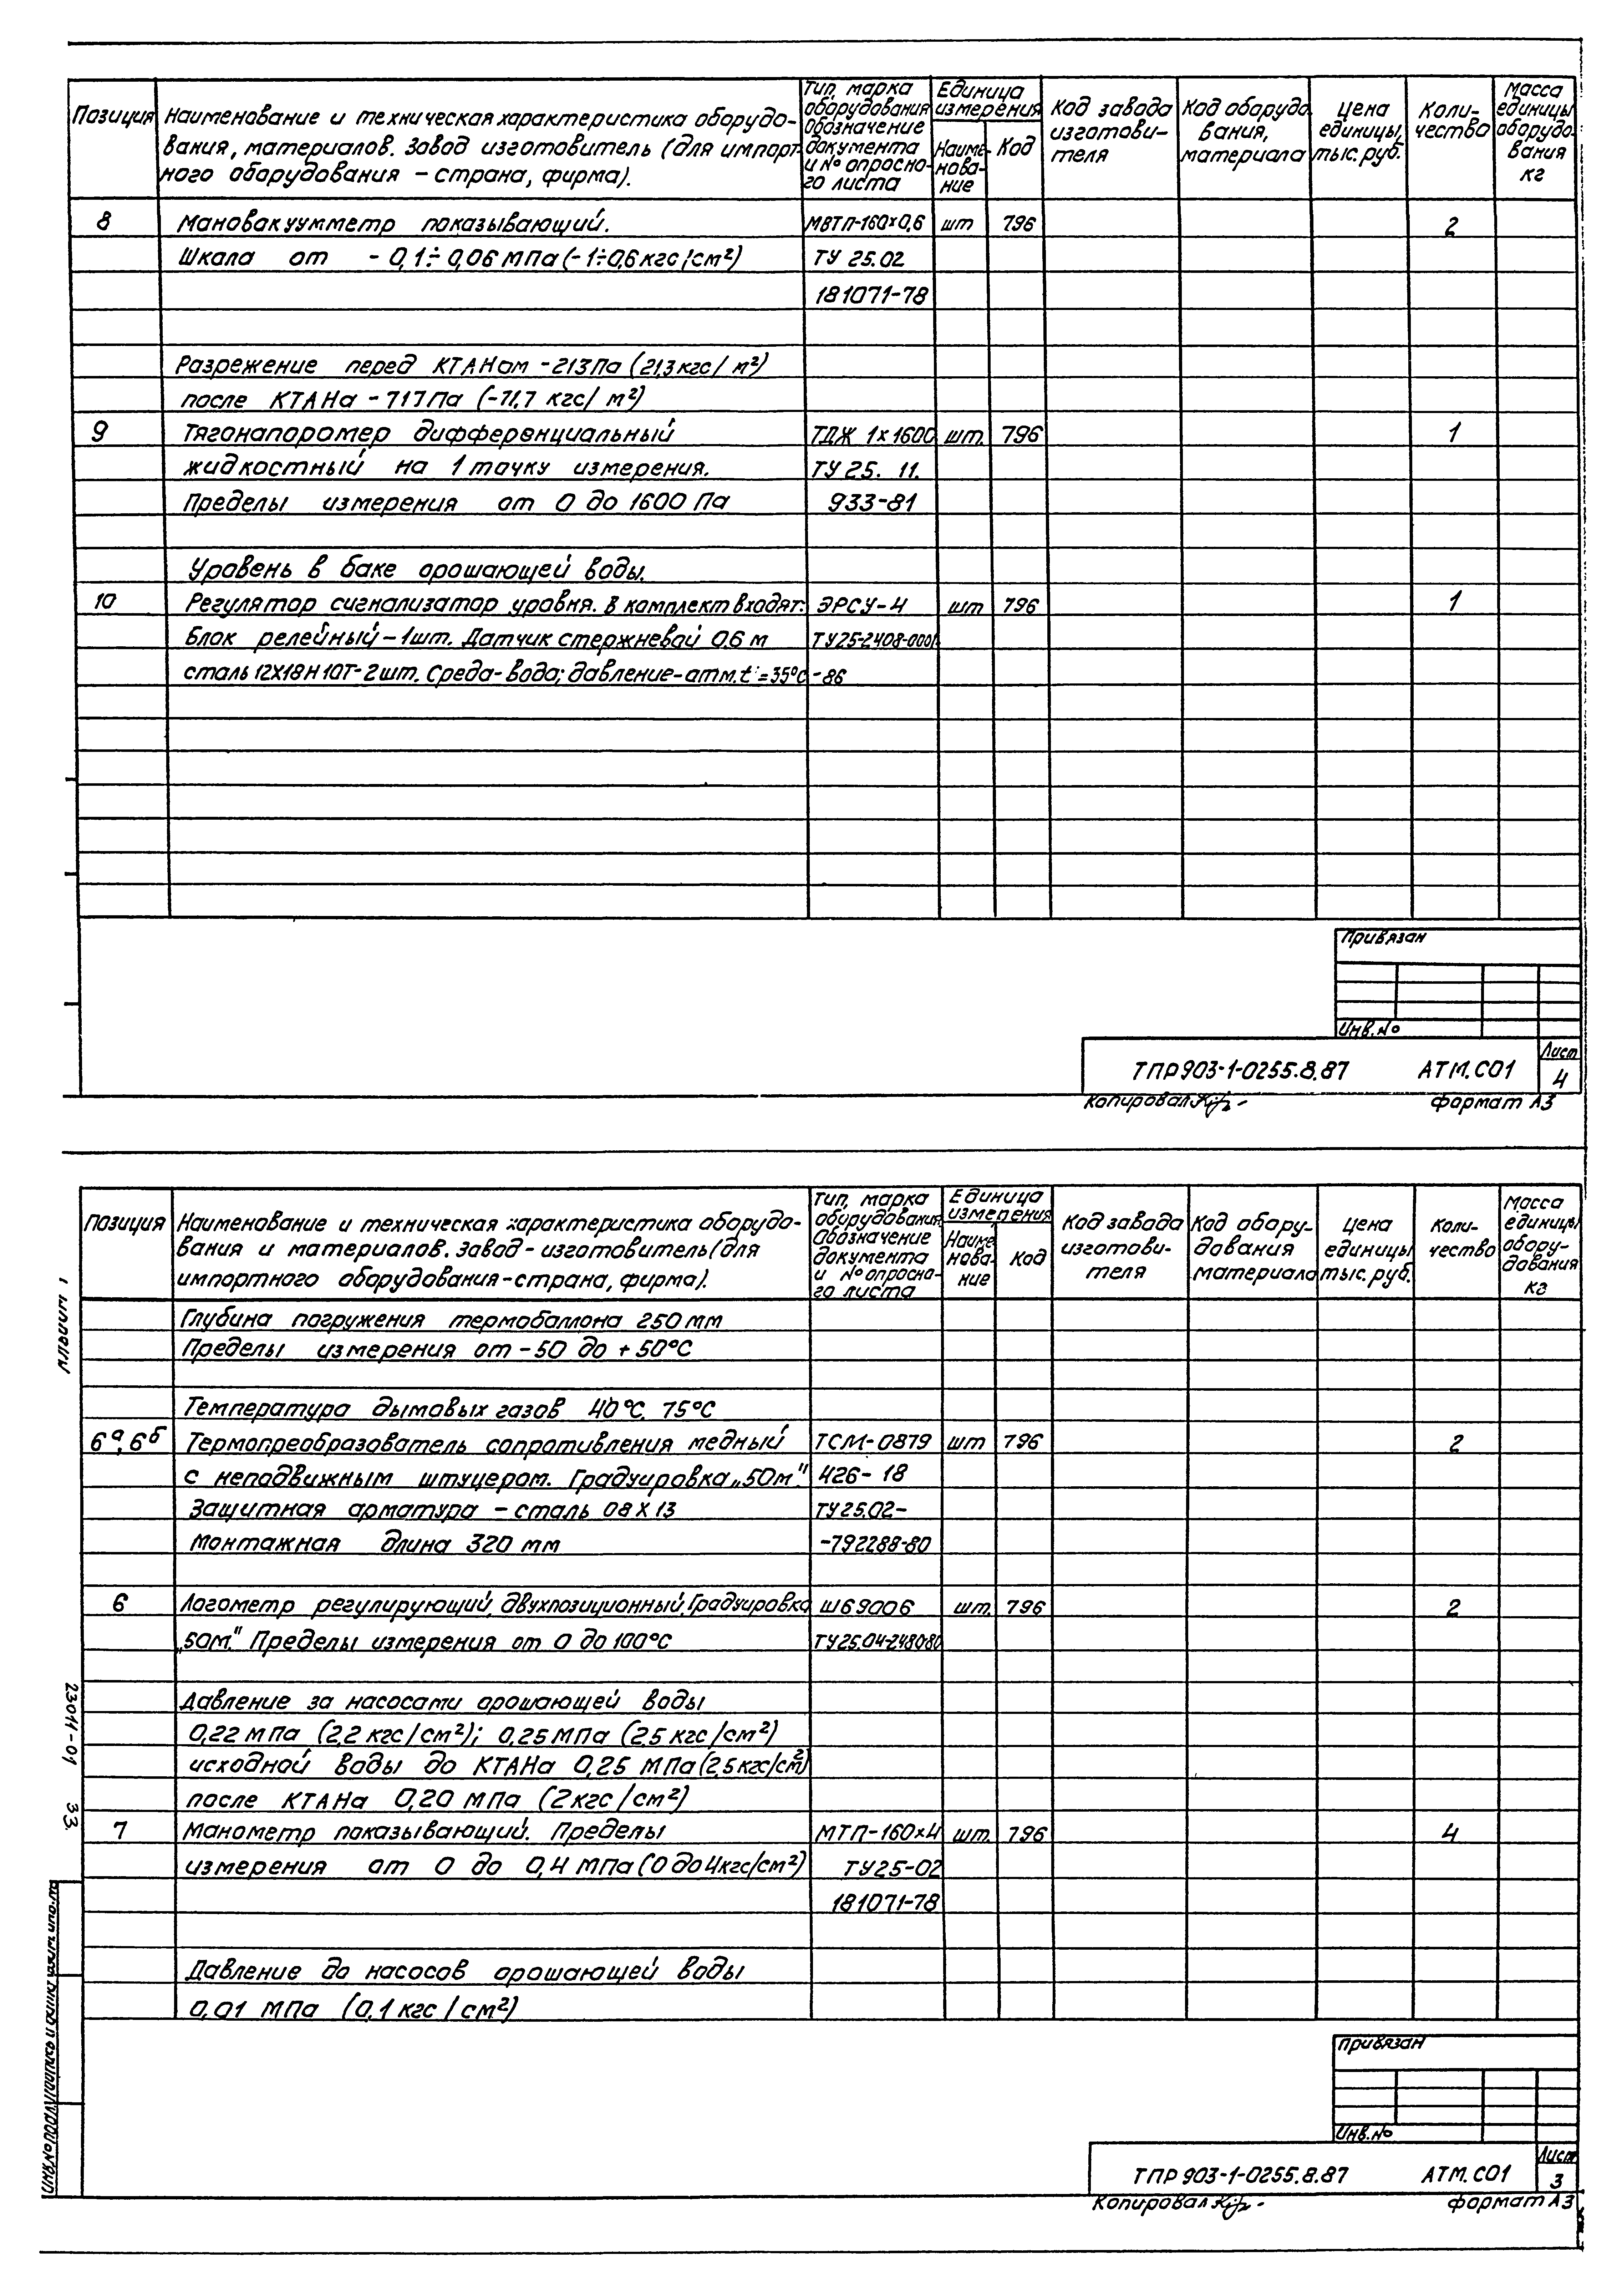 Позиция
Наименование и техническая характеристика оборудо-
вания, материалов. Завод изготовитель (для импорт-
ного оборудования – страна, фирма).
Тип, марка
оборудования
обозначение
документа
и № опросно-
го листа
Единица
измерения
Наиме-
нова-
ние
Код
Код завода
изготови-
теля
Код оборудо
вания,
материала
Цена
единицы,
тыс. руб.
Коли-
чество
Масса
единицы
оборудо-
вания
кг
8 Мановакуумметр показывающий. МВТП-160×0,6 шт 796 2
Шкала от - 0,1÷0,06 МПа (-1÷0,6 кгс/см²) ТУ 25.02
181071-78
Разрежение перед КТАНом -213Па (21,3 кгс/м²)
после КТАНа -717Па (-71,7 кгс/м²)
9 Тягонапоромер дифференциальный ТДЖ 1×1600 шт. 796 1
жидкостный на 1 точку измерения. ТУ 25. 11.
Пределы измерения от 0 до 1600 Па 933-81
Уровень в баке орошающей воды.
10 Регулятор сигнализатор уровня. В комплект входят: ЭРСУ-4 шт 796 1
Блок релейный – 1шт. Датчик стержневой 0,6 м ТУ25-2408-0001
сталь 12Х18Н10Т-2шт. Среда-вода; давление-атм. t=35°С -86
Привязан
Инв. №
ТПР 903-1-0255.8.87 АТМ.СО1
Лист
4
Копировал
формат А3
Позиция
Наименование и техническая характеристика оборудо-
вания и материалов. Завод-изготовитель (для
импортного оборудования-страна, фирма).
Тип, марка
оборудования
Обозначение
документа
и № опросно-
го листа
Единица
измерения
Наиме
нова-
ние
Код
Код завода
изготови-
теля
Код обору-
дования
материала
Цена
единицы
тыс. руб.
Коли-
чество
Масса
единицы
обору-
дования
кг
Глубина погружения термобаллона 250 мм
Пределы измерения от -50 до +50°С
Температура дымовых газов 40°С, 75°С
6а, 6б Термопреобразователь сопротивления медный ТСМ-0879 шт 796 2
с неподвижным штуцером. Градуировка „50м." 426-18
Защитная арматура – сталь 08Х13 ТУ25.02-
Монтажная длина 320 мм -792288-80
6 Логометр регулирующий, двухпозиционный. Градуировка Ш69006 шт. 796 2
„50м." Пределы измерения от 0 до 100°С ТУ25.04-248080
Давление за насосами орошающей воды
0,22 МПа (2,2 кгс/см²); 0,25 МПа (2,5 кгс/см²)
исходной воды до КТАНа 0,25 МПа (2,5 кгс/см²)
после КТАНа 0,20 МПа (2 кгс/см²)
7 Манометр показывающий. Пределы МТП-160×4 шт. 796 4
измерения от 0 до 0,4 МПа (0 до 4 кгс/см²) ТУ25-02
181071-78
Давление до насосов орошающей воды
0,01 МПа (0,1 кгс/см²)
23011-01 33.
Привязан
Инв. №
ТПР 903-1-0255.8.87 АТМ.СО1
Лист
3
Копировал
формат А3